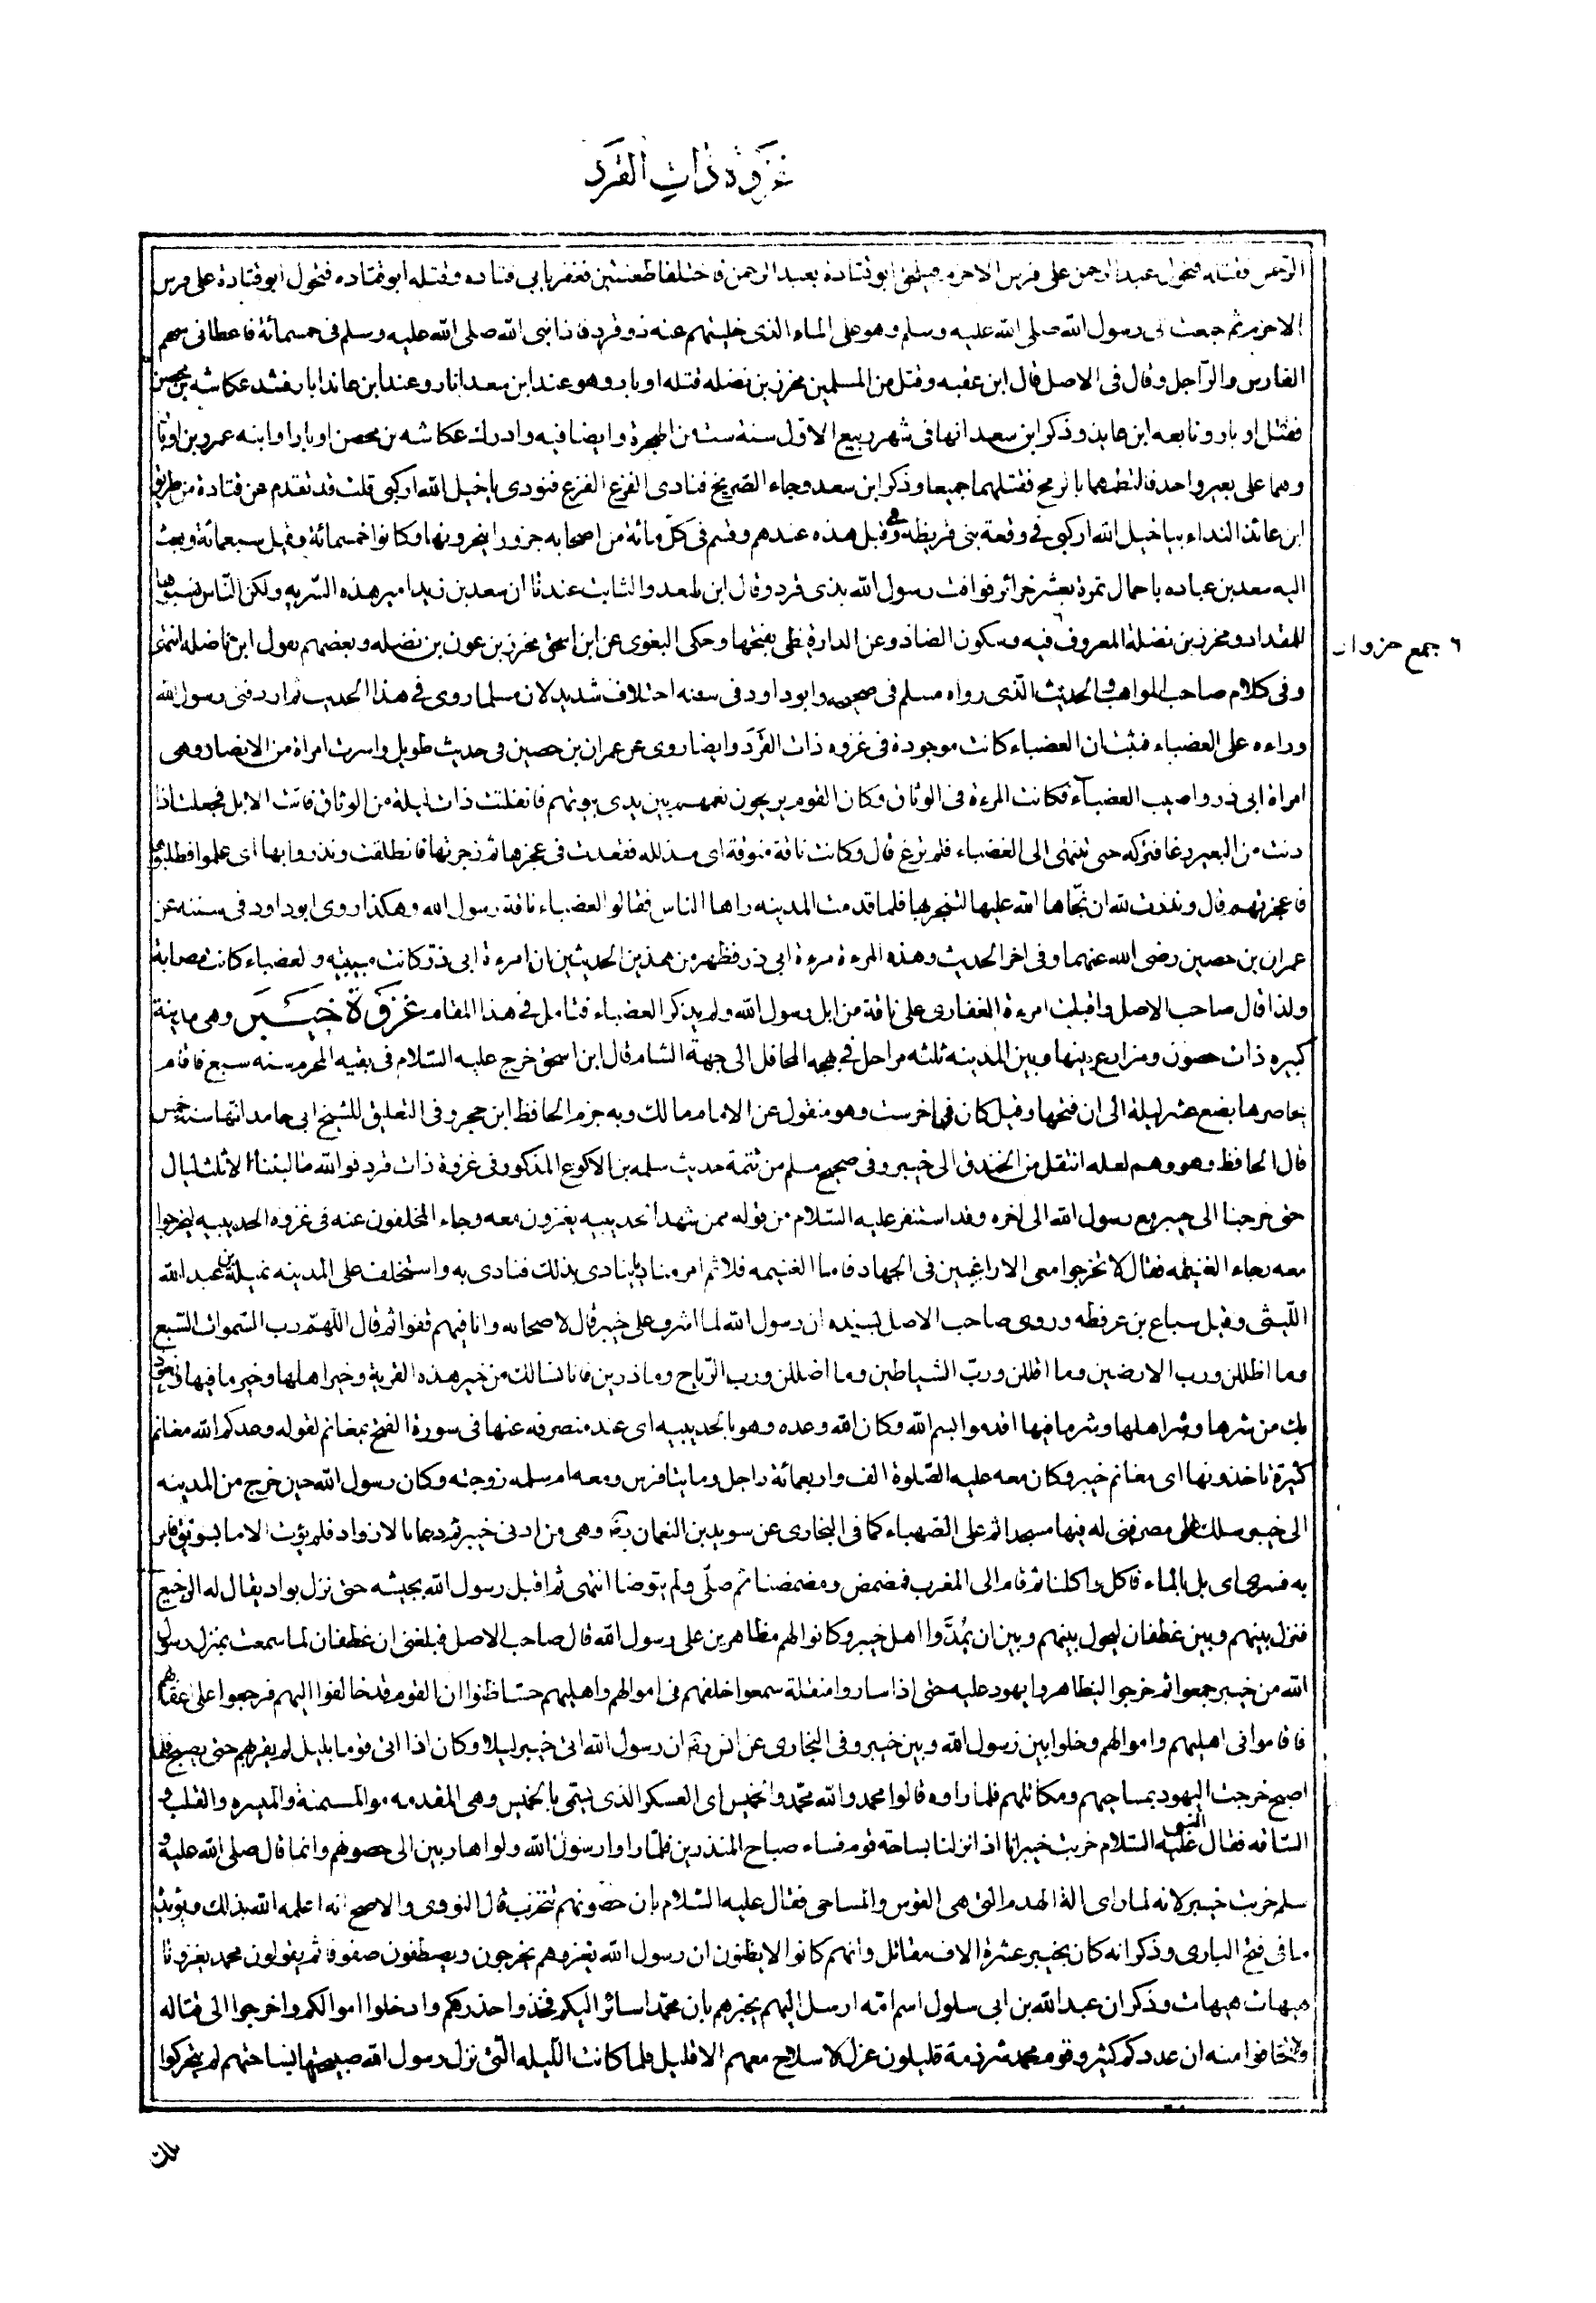 غزوة ذات القرد
الرحمن فقتله فتحول عبد الرحمن على فرس الاخرم فيلحق ابو قتادة بعبد الرحمن فاختلفا طعنتين فعقر بابي قتاده وقتله ابو قتاده فتحول ابو قتادة على فرس
الاخرم ثم جعت الى رسول الله صلى الله عليه وسلم وهو على الماء الذى خليتهم عنه ذو قرد فاذا نبى الله صلى الله عليه وسلم فى خمسمائة فاعطانى سهم
الفارس والراجل وقال فى الاصل قال ابن عقبه وقتل من المسلمين محرز بن نضله قتله اوبار وهو عند ابن سعد اثار وعند ابن عائذ ابار فشد عكاشه بن محصن
فقتل اوبار وتابعه ابن عايذ وذكر ابن سعد انها فى شهر ربيع الاول سنة ست من الهجرة وايضا فيه وادرك عكاشه بن محصن اوبارا وابنه عمرو بن اوبا
وهما على بعير واحد فانتظمهما بالرمح فقتلهما جميعا وذكر ابن سعد وجاء الصريخ فنادى الفزع الفزع فنودى ياخيل الله اركبى قلت قد تقدم عن قتادة من طريق
ابن عائذ النداء بياخيل الله اركبى فى وقعة بنى قريظه وهى قبل هذه عندهم وقسم فى كل مائة من اصحابه جزورا ينحرونها وكانوا خمسمائة وقيل سبعمائة وبعث
اليه سعد بن عباده باحمال تمرة بعشر جزائر فوافت رسول الله بذى قرد وقال ابن سعد والثابت عندنا ان سعد بن زيد امير هذه السريه ولكن الناس نسبوها
للمقداد ومحرز بن نضلة المعروف فيه وسكون الضاد وعن الدارقطنى بفتحها وحكى البغوى عن ابن اسحق محرز بن عون بن نضله وبعضهم يقول ابن ناضله انتهى
٦ جمع جزوار
وفى كلام صاحب المواهب والحديث الذى رواه مسلم فى صحيحه وابو داود فى سننه اختلاف شديد لان مسلما روى فى هذا الحديث ثم اردفنى رسول الله
وراءه على العضباء فثبت ان العضباء كانت موجودة فى غزوه ذات القرد وايضا روى عن عمران بن حصين فى حديث طويل واسرت امراة من الانصار وهى
امراة ابى ذر واصيب العضباء فكانت المرءة فى الوثاق وكان القوم يريحون نعمهم بين يدى بيوتهم فانفلتت ذات ليلة من الوثاق فاتت الابل فجعلت اذا
دنت من البعير رغا فتركه حتى تنتهى الى العضباء فلم ترغ قال وكانت ناقة منوقة اى مذلله فقعدت فى عجزها ثم زجرتها فانطلقت ونذروا بها اى علموا فطلبوها
فاعجزتهم قال ونذرت لله ان نجاها الله عليها لتنحرنها فلما قدمت المدينه راها الناس فقالوا العضباء ناقة رسول الله وهكذا روى ابو داود فى سننه عن
عمران بن حصين رضى الله عنهما وفى اخر الحديث وهذه المرءة مرءة ابى ذر فظهر من هذين الحديثين ان امرءة ابى ذر كانت مسبيه والعضباء كانت مصابة
ولذا قال صاحب الاصل واقبلت امرءة الغفارى على ناقة من ابل رسول الله ولم يذكر العضباء فتامل فى هذا المقام غزوة خيبر وهى مدينة
كبيره ذات حصون ومزارع بينها وبين المدينه ثلثه مراحل فى المحافل الى جهة الشام قال ابن اسحق خرج عليه السلام فى بقيه المحرم سنه سبع فاقام
يحاصرها بضع عشر ليلة الى ان فتحها وقيل كان فى اخر ست وهو منقول عن الامام مالك وبه جزم الحافظ ابن حجر وفى التعليق للشيخ ابى حامد انها سنه خمس
قال الحافظ وهو وهم لعله انتقل من الخندق الى خيبر وفى صحيح مسلم من تتمة حديث سلمه بن الاكوع المذكور فى غزوة ذات قرد فوالله ما لبثنا الا ثلث ليال
حتى خرجنا الى خيبر مع رسول الله الى اخره وقد استنفر عليه السلام من قوله ممن شهد الحديبيه يغزون معه وجاء المخلفون عنه فى غزوه الحديبيه ليخرجوا
معه رجاء الغنيمه فقال لا تخرجوا معى الا راغبين فى الجهاد فاما الغنيمه فلا ثم امر مناديا ينادى بذلك فنادى به واستخلف على المدينه نميلة بن عبد الله
الليثى وقيل سباع بن عرفطه وروى صاحب الاصل بسنده ان رسول الله لما اشرف على خيبر قال لاصحابه وانا فيهم قفوا ثم قال اللهم رب السموات السبع
وما اظللن ورب الارضين وما اقللن ورب الشياطين وما اضللن ورب الرياح وما ذرين فانا نسالك من خير هذه القرية وخير اهلها وخير ما فيها ونعوذ
بك من شرها وشر اهلها وشر ما فيها اقدموا بسم الله وكان الله وعده وهو بالحديبيه اى عند منصرفه عنها فى سورة الفتح بمغانم لقوله وعدكم الله مغانم
كثيرة تاخذونها اى مغانم خيبر وكان معه عليه الصلوة الف واربعمائة راجل ومايتا فرس ومعه ام سلمه زوجته وكان رسول الله حين خرج من المدينه
الى خيبر سلك على عصر فبنى له فيها مسجدا ثم على الصهباء كما فى البخارى عن سويد بن النعمان رض وهى من ادنى خيبر ثم دعا بالازواد فلم يؤت الا ما بسويق فامر
به فثرى اى بل بالماء فاكل واكلنا ثم قام الى المغرب فمضمض ومضمضنا ثم صلى ولم يتوضا انتهى ثم اقبل رسول الله بجيشه حتى نزل بواد يقال له الرجيع
فنزل بينهم وبين غطفان ليحول بينهم وبين ان يمدوا اهل خيبر وكانوا لهم مظاهرين على رسول الله قال صاحب الاصل فبلغنى ان غطفان لما سمعت بمنزل رسول
الله من خيبر جمعوا ثم خرجوا ليظاهروا يهود عليه حتى اذا ساروا منقلة سمعوا خلفهم فى اموالهم واهليهم حسا ظنوا ان القوم قد خالفوا اليهم فرجعوا على اعقابهم
فاقاموا فى اهليهم واموالهم وخلوا بين رسول الله وبين خيبر وفى البخارى عن انس رض ان رسول الله اتى خيبر ليلا وكان اذا اتى قوما بليل لم يقربهم حتى يصبح فلما
اصبح خرجت اليهود بمساحيهم ومكاتلهم فلما راوه قالوا محمد والله محمد والخميس اى العسكر الذى يسمى بالخميس وهى المقدمه والميمنة والميسره والقلب و
الساقه فقال النبى عليه السلام خربت خيبر انا اذا نزلنا بساحة قوم فساء صباح المنذرين فلما راوا رسول الله ولوا هاربين الى حصونهم وانما قال صلى الله عليه و
سلم خربت خيبر لانه لما راى الة الهدم التى هى الفوس والمساحى فقال عليه السلام بان حصونهم تتخرب قال النووى والاصح انه اعلمه الله بذلك ويؤيده
ما فى فتح البارى وذكر انه كان بخيبر عشرة الاف مقاتل وانهم كانوا لا يظنون ان رسول الله يغزوهم يخرجون ويصطفون صفوفا ثم يقولون محمد يغزونا
هيهات هيهات وذكر ان عبد الله بن ابى سلول اسم امه ارسل اليهم يخبرهم بان محمدا سائر اليكم فخذوا حذركم وادخلوا اموالكم واخرجوا الى قتاله
ولا تخافوا منه ان عددكم كثير وقوم محمد شرذمة قليلون عزل لا سلاح معهم الا قليل فلما كانت الليله التى نزل رسول الله صبيحتها بساحتهم لم يتحركوا
تلك